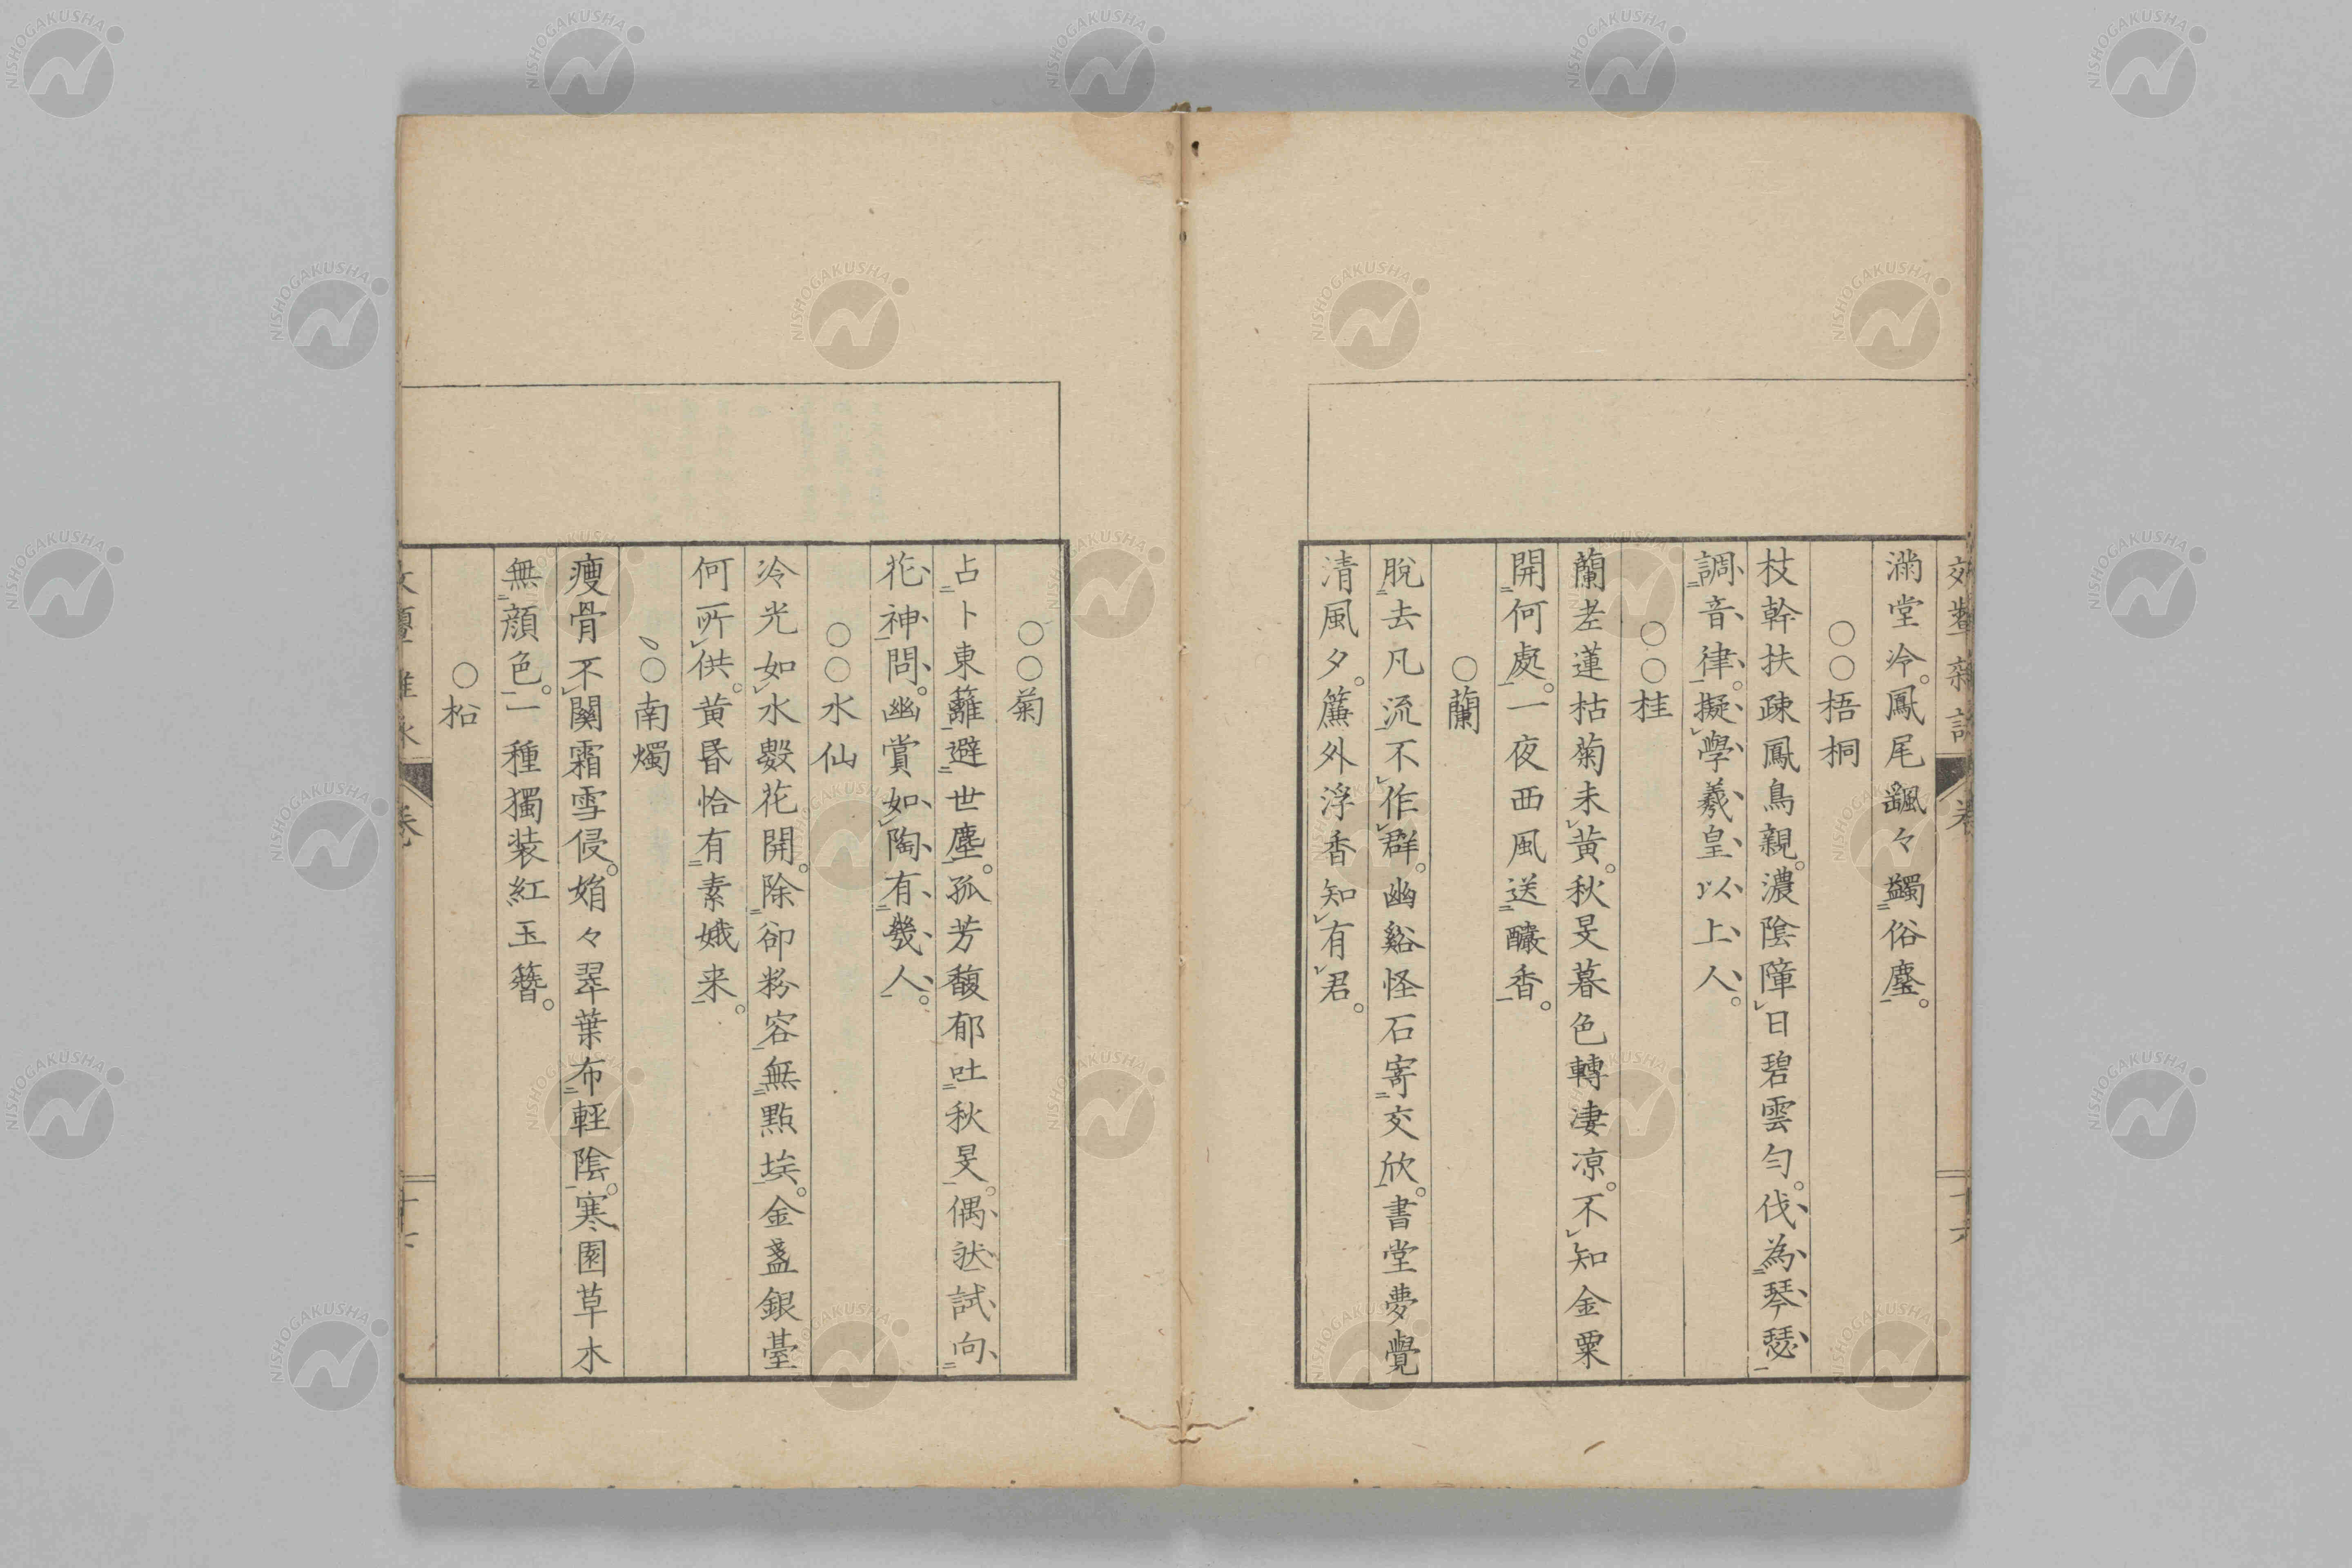 滿堂冷。鳳尾飄々蠲俗塵。
○○梧桐
枝幹扶疎鳳鳥親。濃陰障日碧雲勻。伐為琴瑟
調音律。擬學羲皇以上人。
○○桂
蘭老蓮枯菊未黃。秋旻暮色轉淒凉。不知金粟
開何處。一夜西風送釀香。
○蘭
脫去凡流不作群。幽谿怪石寄交欣。書堂夢覺
清風夕。簾外浮香知有君。
十六
○○菊
占卜東籬避世塵。孤芳馥郁吐秋旻。偶然試向
花神問。幽賞如陶有幾人。
○○水仙
冷光如水數花開。除卻粉容無點埃。金盞銀臺
何所供。黃昏恰有素娥来。
○南燭
瘦骨不關霜雪侵。娟々翠葉布輕陰。寒園草木
無顏色。一種獨装紅玉簪。
○松
卷
十七
NISHOGAKUSHA